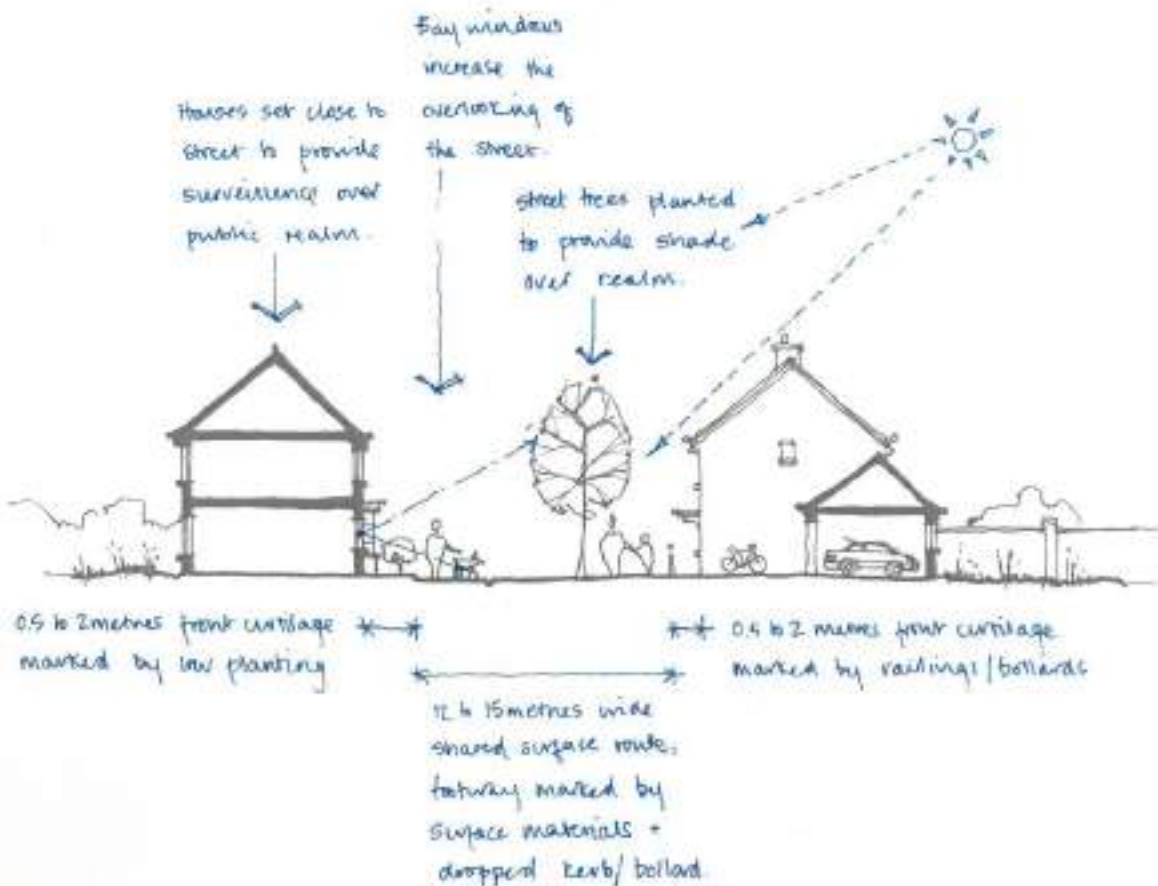 Bay windows
increase the
overlooking of
the street.
Houses set close to
street to provide
surveillence over
public realm.
street trees planted
to provide shade
over realm.
0.5 to 2 metres front curtilage
marked by low planting
0.5 to 2 metres front curtilage
marked by railings/bollards
12 to 15 metres wide
shared surface route,
footway marked by
surface materials +
dropped kerb/bollard.